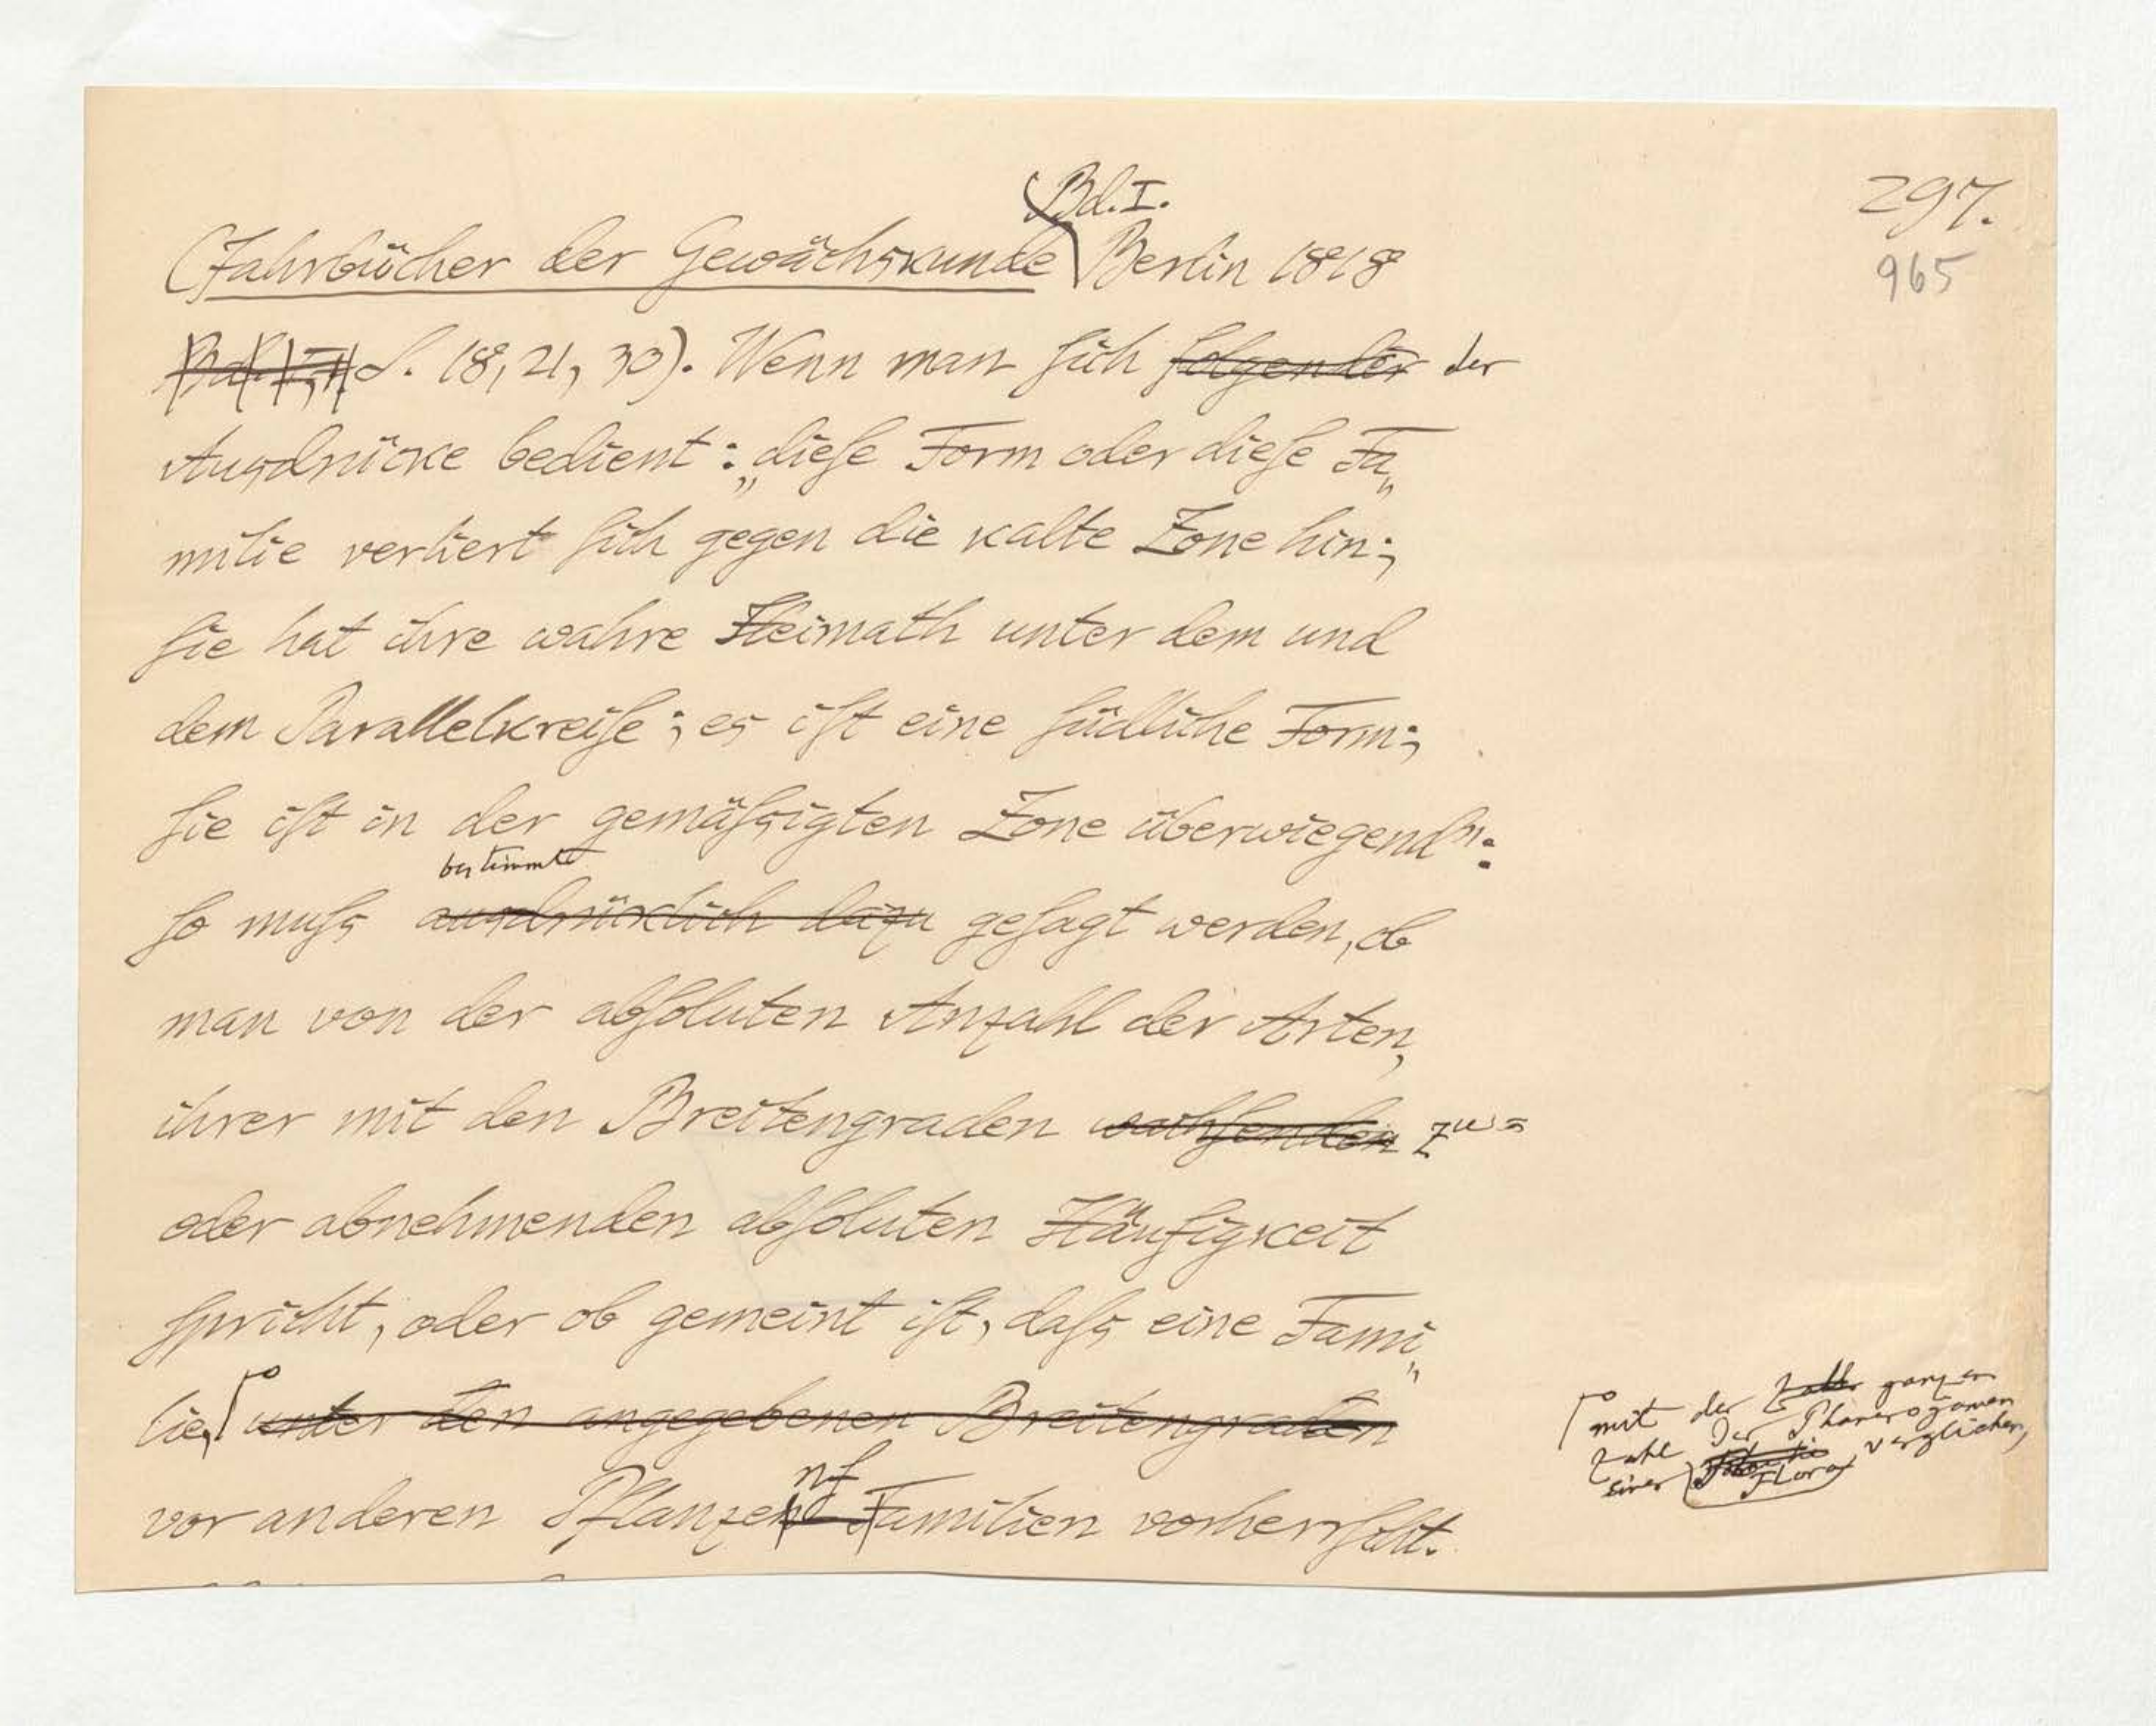 297.
965
Bd. I.
(Jahrbücher der Gewächskunde Berlin 1818
S. 18, 21, 30). Wenn man ſich folgender der
Ausdrücke bedient: „dieſe Form oder dieſe Fa„
milie verliert ſich gegen die kalte Zone hin;
ſie hat ihre wahre Heimath unter dem und
dem Parallelkreiſe; es iſt eine ſüdliche Form;
ſie iſt in der gemäſsigten Zone überwiegend“:
bestimmt
ſo muſs ausdrücklich dazu geſagt werden, ob
man von der abſoluten Anzahl der Arten,
ihrer mit den Breitengraden wachſenden zu=
oder abnehmenden abſoluten Häufigkeit
ſpricht, oder ob gemeint iſt, daſs eine Fami„
lie, unter den angegebenen Breitengraden
vor anderen Pflanzen Familien vorherrſcht.
mit der Zahl ganzen
Zahl der Phanerogamen
einer Flora verglichen,